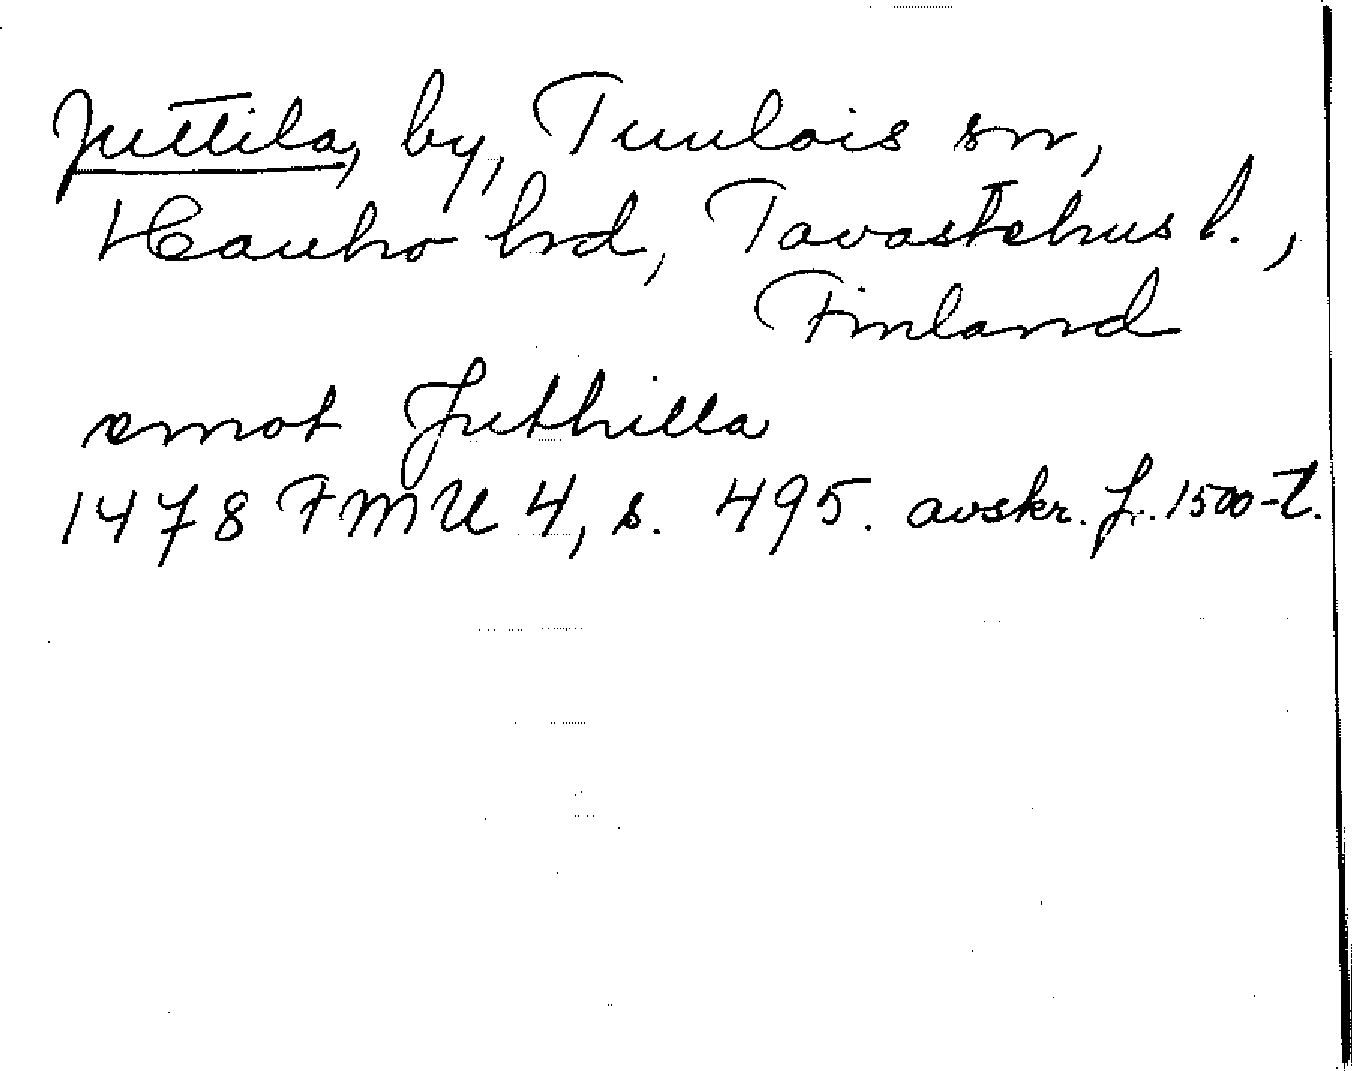 Juttila, by, Tuulois sn,
Hauho hrd, Tavastehus l.,
Finland
emot Juthilla
1478 FMU 4, s. 495. avskr. f. 1500-t.